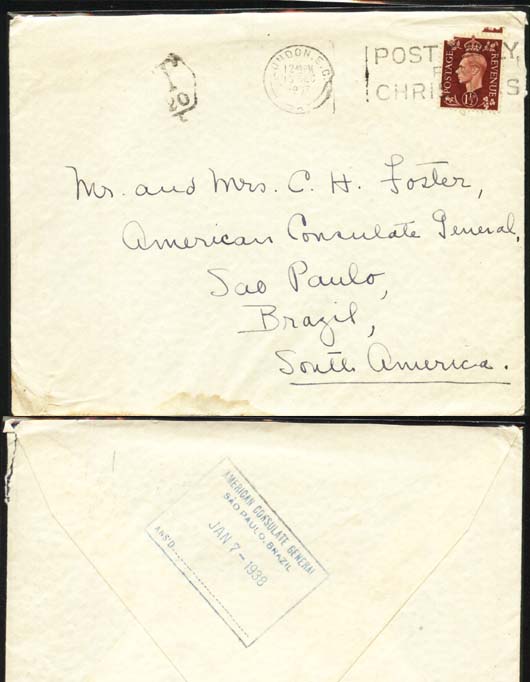 T
20
c
LONDON. E.C.
193
POST
CHRI S
POSTAGE
REVENUE
1½
Mr. and Mrs. C. H. Foster,
American Consulate General,
Sao Paulo,
Brazil,
South America.
AMERICAN CONSULATE GENERAL
SÃO PAULO, BRAZIL
JAN 7 - 1938
ANS'D